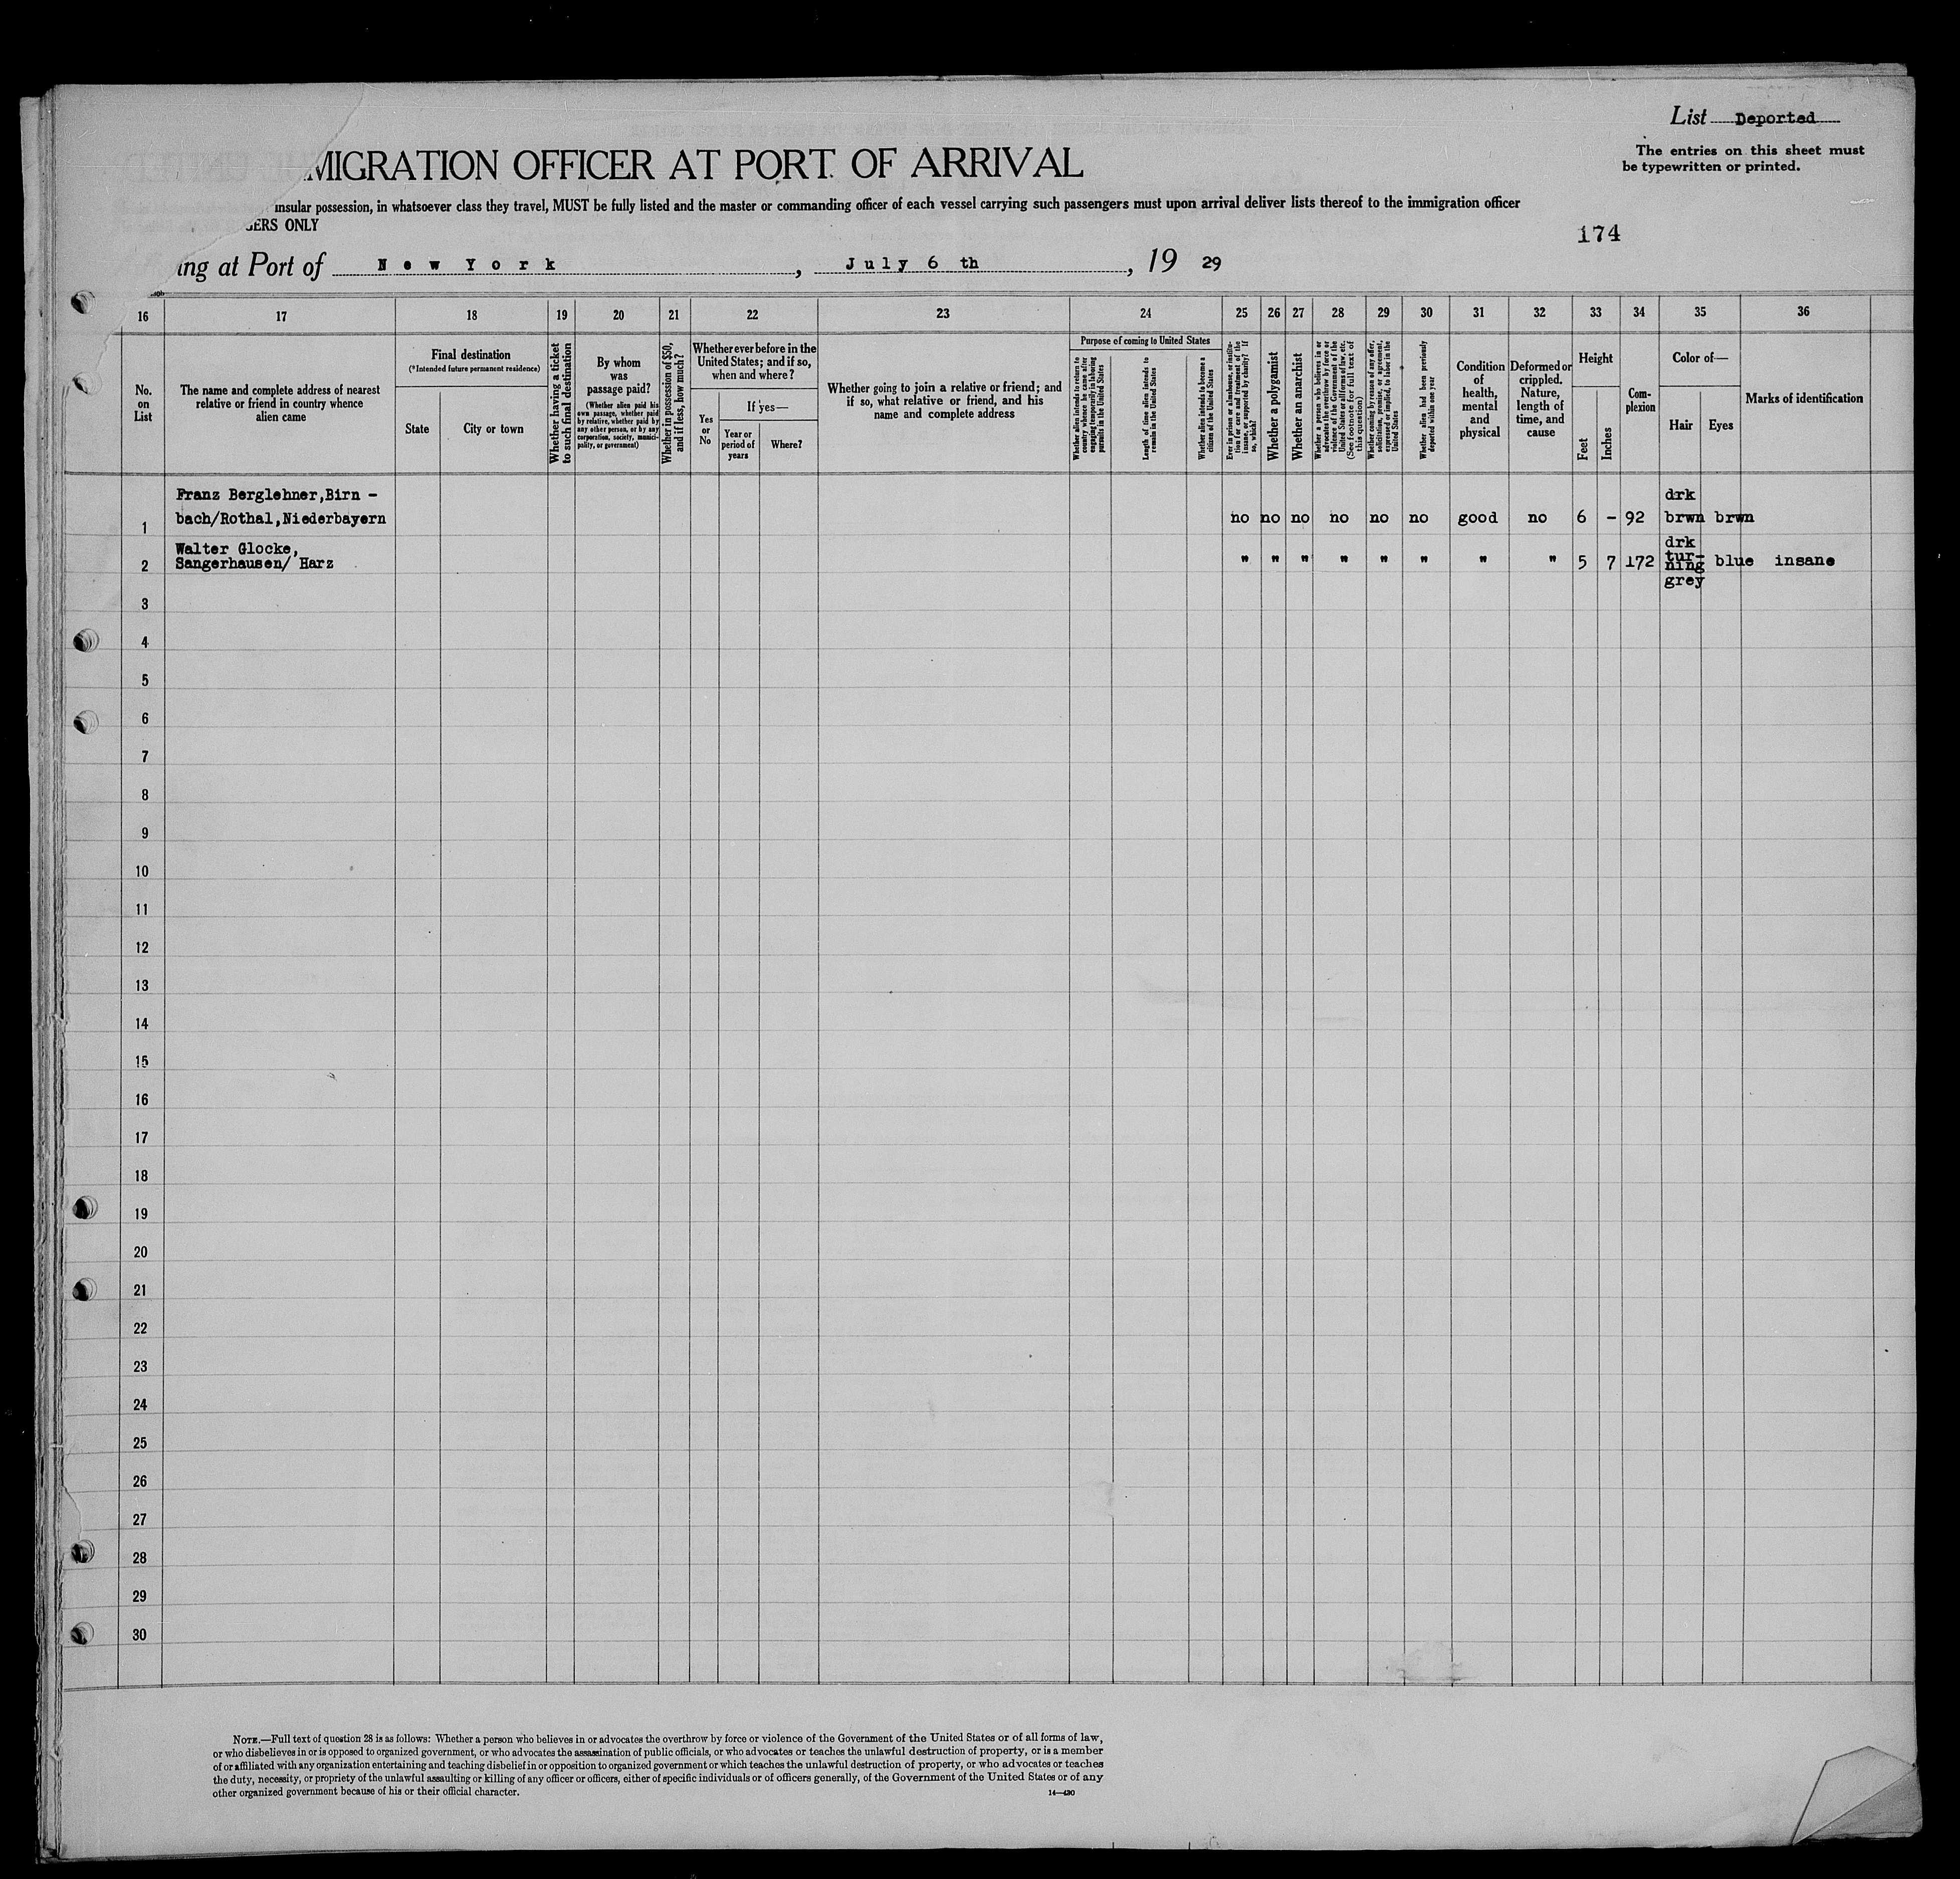 List Deported
The entries on this sheet must
be typewritten or printed.
MIGRATION OFFICER AT PORT OF ARRIVAL
insular possession, in whatsoever class they travel, MUST be fully listed and the master or commanding officer of each vessel carrying such passengers must upon arrival deliver lists thereof to the immigration officer
GERS ONLY
174
ing at Port of New York, July 6 th, 19 29
16 17 18 19 20 21 22 23 24 25 26 27 28 29 30 31 32 33 34 35 36
No.
on
List
The name and complete address of nearest
relative or friend in country whence
alien came
Final destination
(*Intended future permanent residence)
State
City or town
Whether having a ticket
to such final destination
By whom
was
passage paid?
(Whether alien paid his
own passage, whether paid
by relative, whether paid by
any other person, or by any
corporation, society, munici-
pality, or government)
Whether in possession of $50,
and if less, how much?
Whether ever before in the
United States; and if so,
when and where?
Yes
or
No
If yes—
Year or
period of
years
Where?
Whether going to join a relative or friend; and
if so, what relative or friend, and his
name and complete address
Purpose of coming to United States
Whether alien intends to return to
country whence he came after
engaging temporarily in laboring
pursuits in the United States
Length of time alien intends to
remain in the United States
Whether alien intends to become a
citizen of the United States
Ever in prison or almshouse, or institu-
tion for care and treatment of the
insane, or supported by charity? If
so, which?
Whether a polygamist
Whether an anarchist
Whether a person who believes in or
advocates the overthrow by force or
violence of the Government of the
United States or all forms of law, etc.
(See footnote for full text of
this question)
Whether coming by reason of any offer,
solicitation, promise, or agreement,
expressed or implied, to labor in the
United States
Whether alien had been previously
deported within one year
Condition
of
health,
mental
and
physical
Deformed or
crippled.
Nature,
length of
time, and
cause
Height
Feet
Inches
Com-
plexion
Color of—
Hair
Eyes
Marks of identification
Franz Berglehner,Birn - drk
1 bach/Rothal,Niederbayern no no no no no no good no 6 - 92 brwn brwn
Walter Glocke, drk
2 Sangerhausen/ Harz " " " " " " " " 5 7 172 tur- blue insane
ning
grey
3
4
5
6
7
8
9
10
11
12
13
14
15
16
17
18
19
20
21
22
23
24
25
26
27
28
29
30
NOTE.—Full text of question 28 is as follows: Whether a person who believes in or advocates the overthrow by force or violence of the Government of the United States or of all forms of law,
or who disbelieves in or is opposed to organized government, or who advocates the assassination of public officials, or who advocates or teaches the unlawful destruction of property, or is a member
of or affiliated with any organization entertaining and teaching disbelief in or opposition to organized government or which teaches the unlawful destruction of property, or who advocates or teaches
the duty, necessity, or propriety of the unlawful assaulting or killing of any officer or officers, either of specific individuals or of officers generally, of the Government of the United States or of any
other organized government because of his or their official character.
14—430